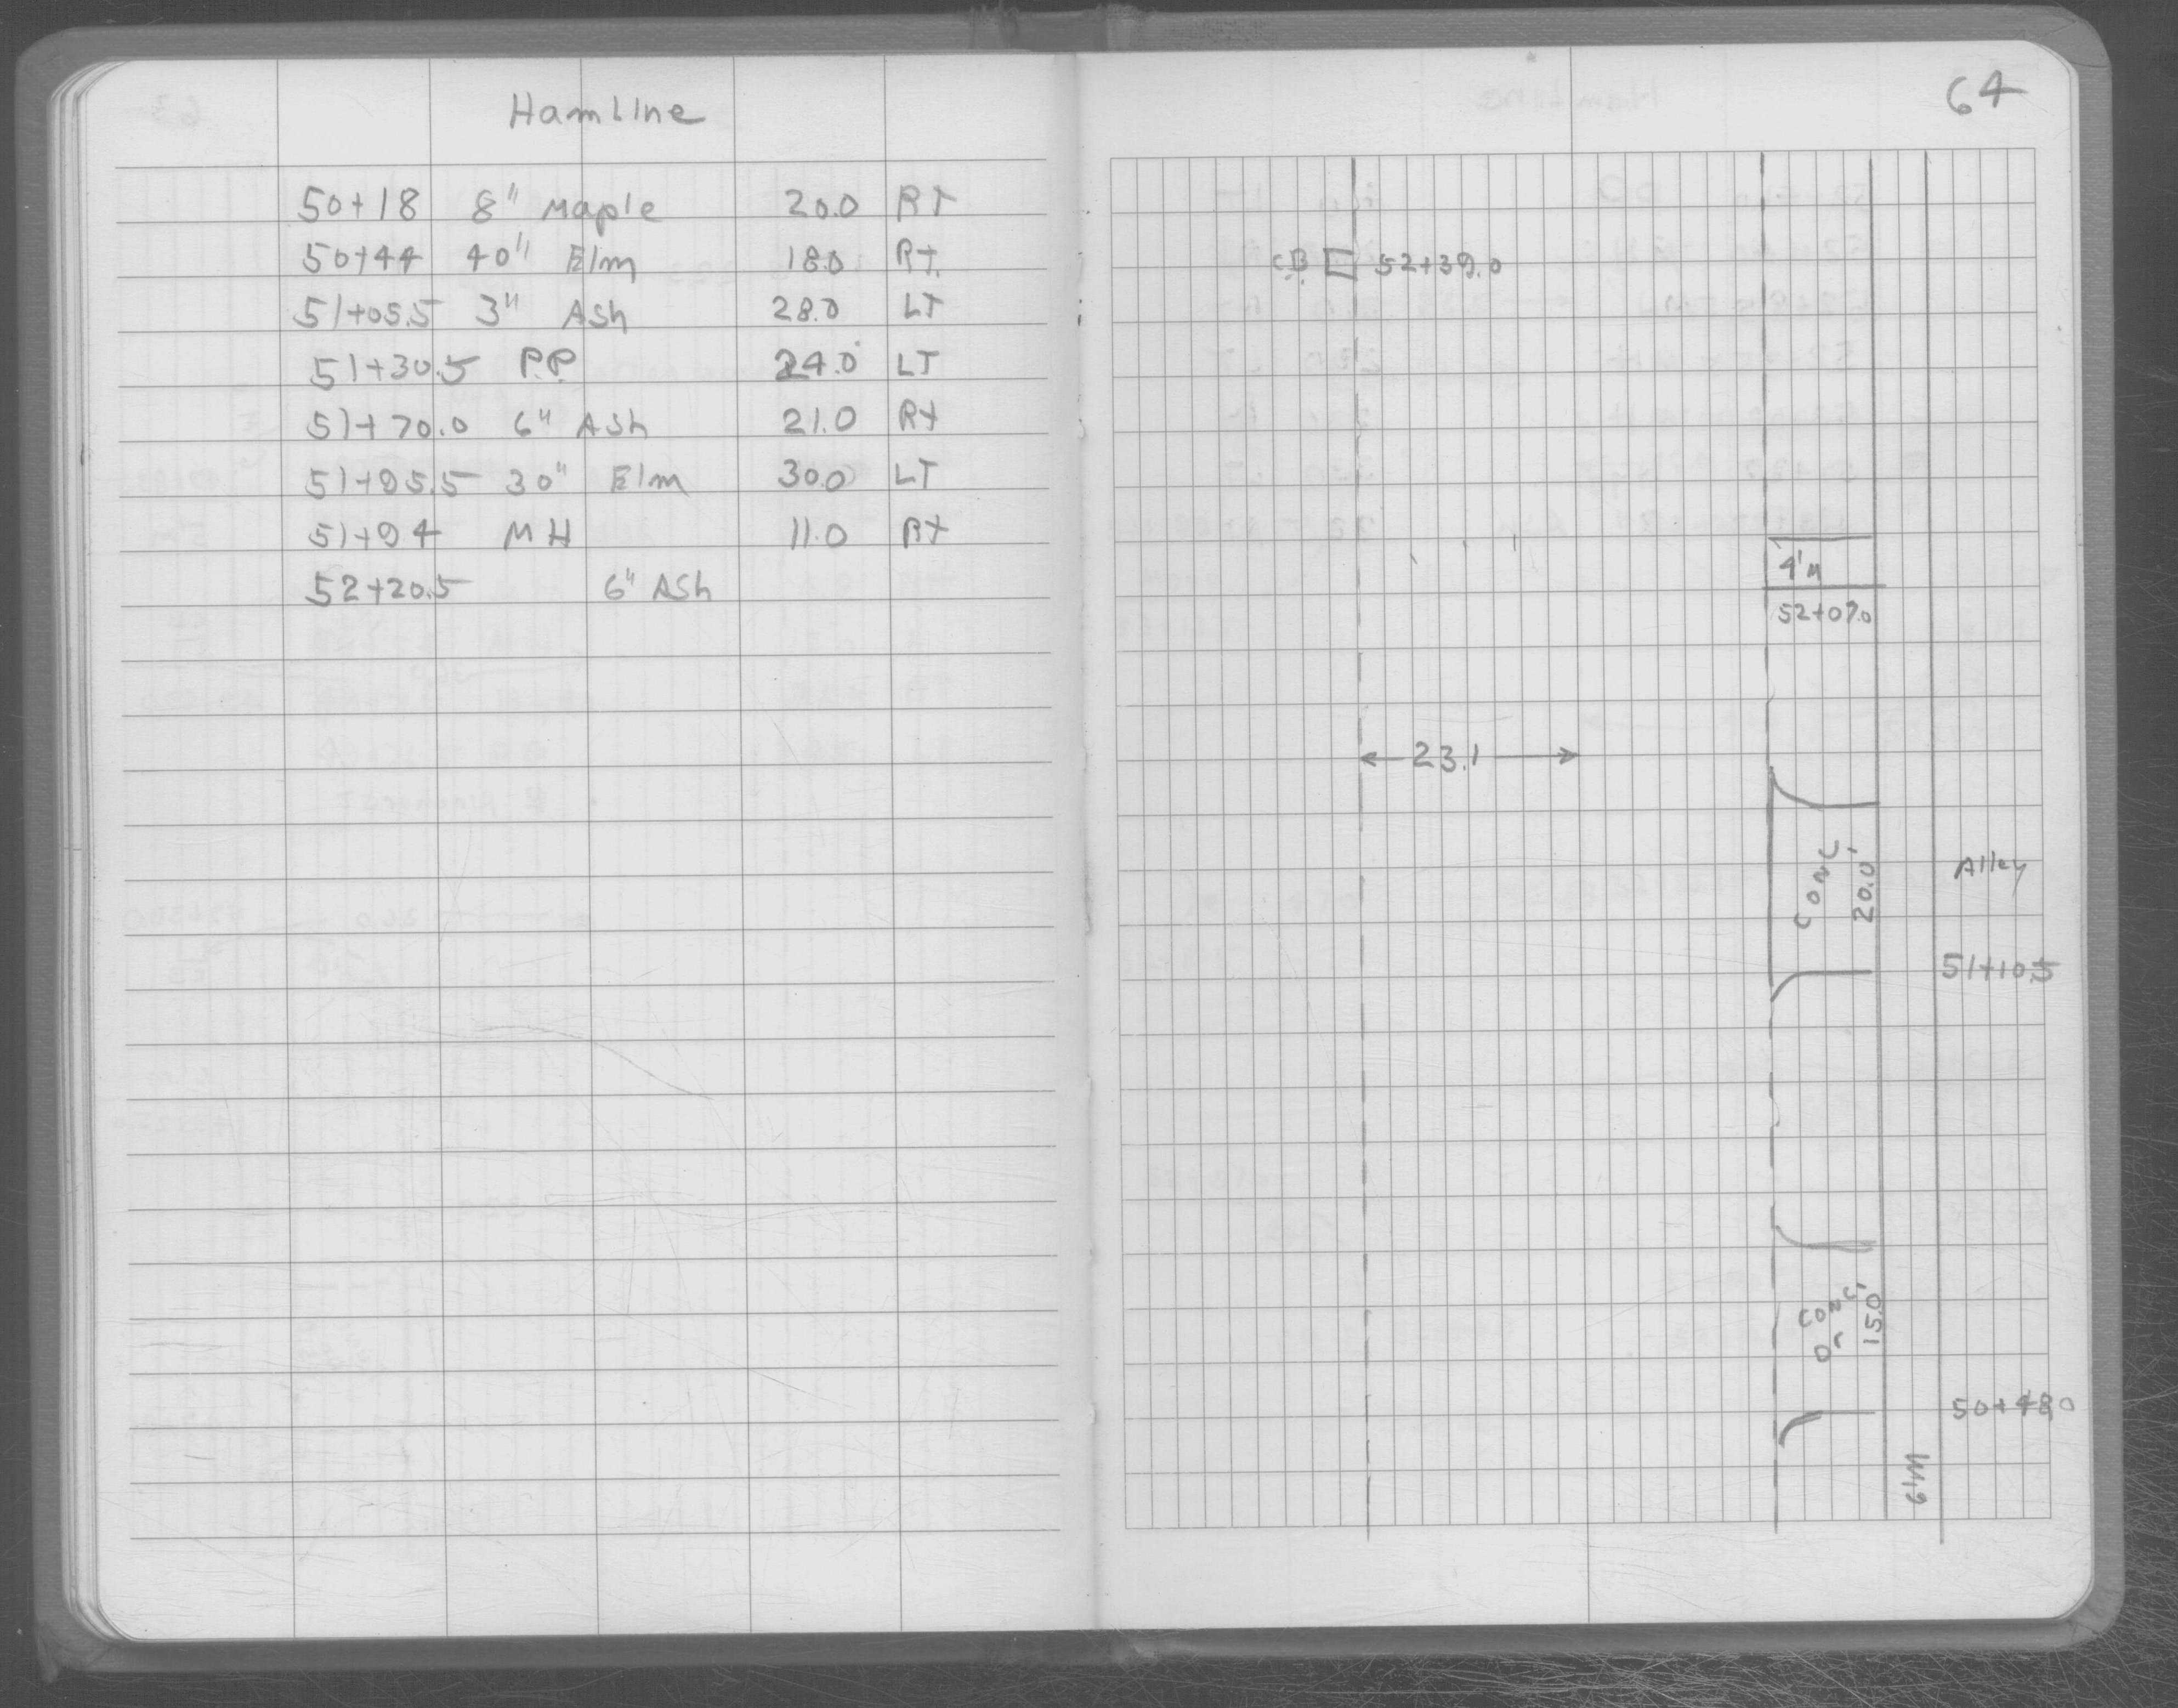 Hamline
50+18 8" Maple 20.0 RT
50+44 40" Elm 18.0 Rt.
51+05.5 3" Ash 28.0 LT
51+30.5 P.P. 24.0 LT
51+70.0 6" Ash 21.0 Rt
51+95.5 30" Elm 30.0 LT
51+94 MH 11.0 Rt
52+20.5 6" Ash
64
CB 52+39.0
4'M
52+07.0
23.1
CONC
20.0'
Alley
51+10.5
CONC
Dr
15.0'
50+48.0
6'M